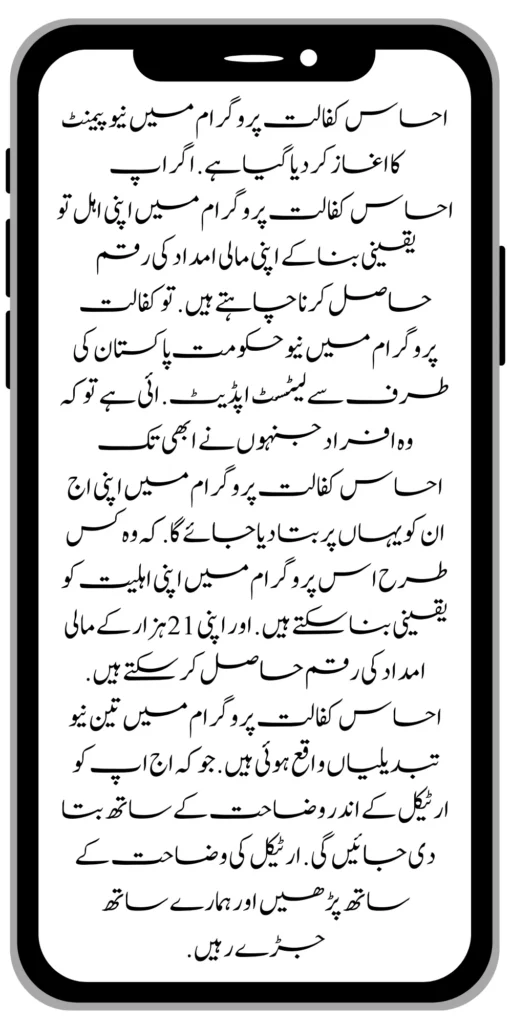 احساس کفالت پروگرام میں نیو پیمنٹ
کا اغاز کر دیا گیا ہے. اگر اپ
احساس کفالت پروگرام میں اپنی اہل تو
یقینی بنا کے اپنی مالی امداد کی رقم
حاصل کرنا چاہتے ہیں. تو کفالت
پروگرام میں نیو حکومت پاکستان کی
طرف سے لیٹسٹ اپڈیٹ. ائی ہے تو کہ
وہ افراد جنہوں نے ابھی تک
احساس کفالت پروگرام میں اپنی اج
ان کو یہاں پر بتا دیا جائے گا. کہ وہ کس
طرح اس پروگرام میں اپنی اہلیت کو
یقینی بنا سکتے ہیں. اور اپنی 21 ہزار کے مالی
امداد کی رقم حاصل کر سکتے ہیں.
احساس کفالت پروگرام میں تین نیو
تبدیلیاں واقع ہوئی ہیں. جو کہ اج اپ کو
ارٹیکل کے اندر وضاحت کے ساتھ بتا
دی جائیں گی. ارٹیکل کی وضاحت کے
ساتھ پڑھیں اور ہمارے ساتھ
جڑے رہیں.